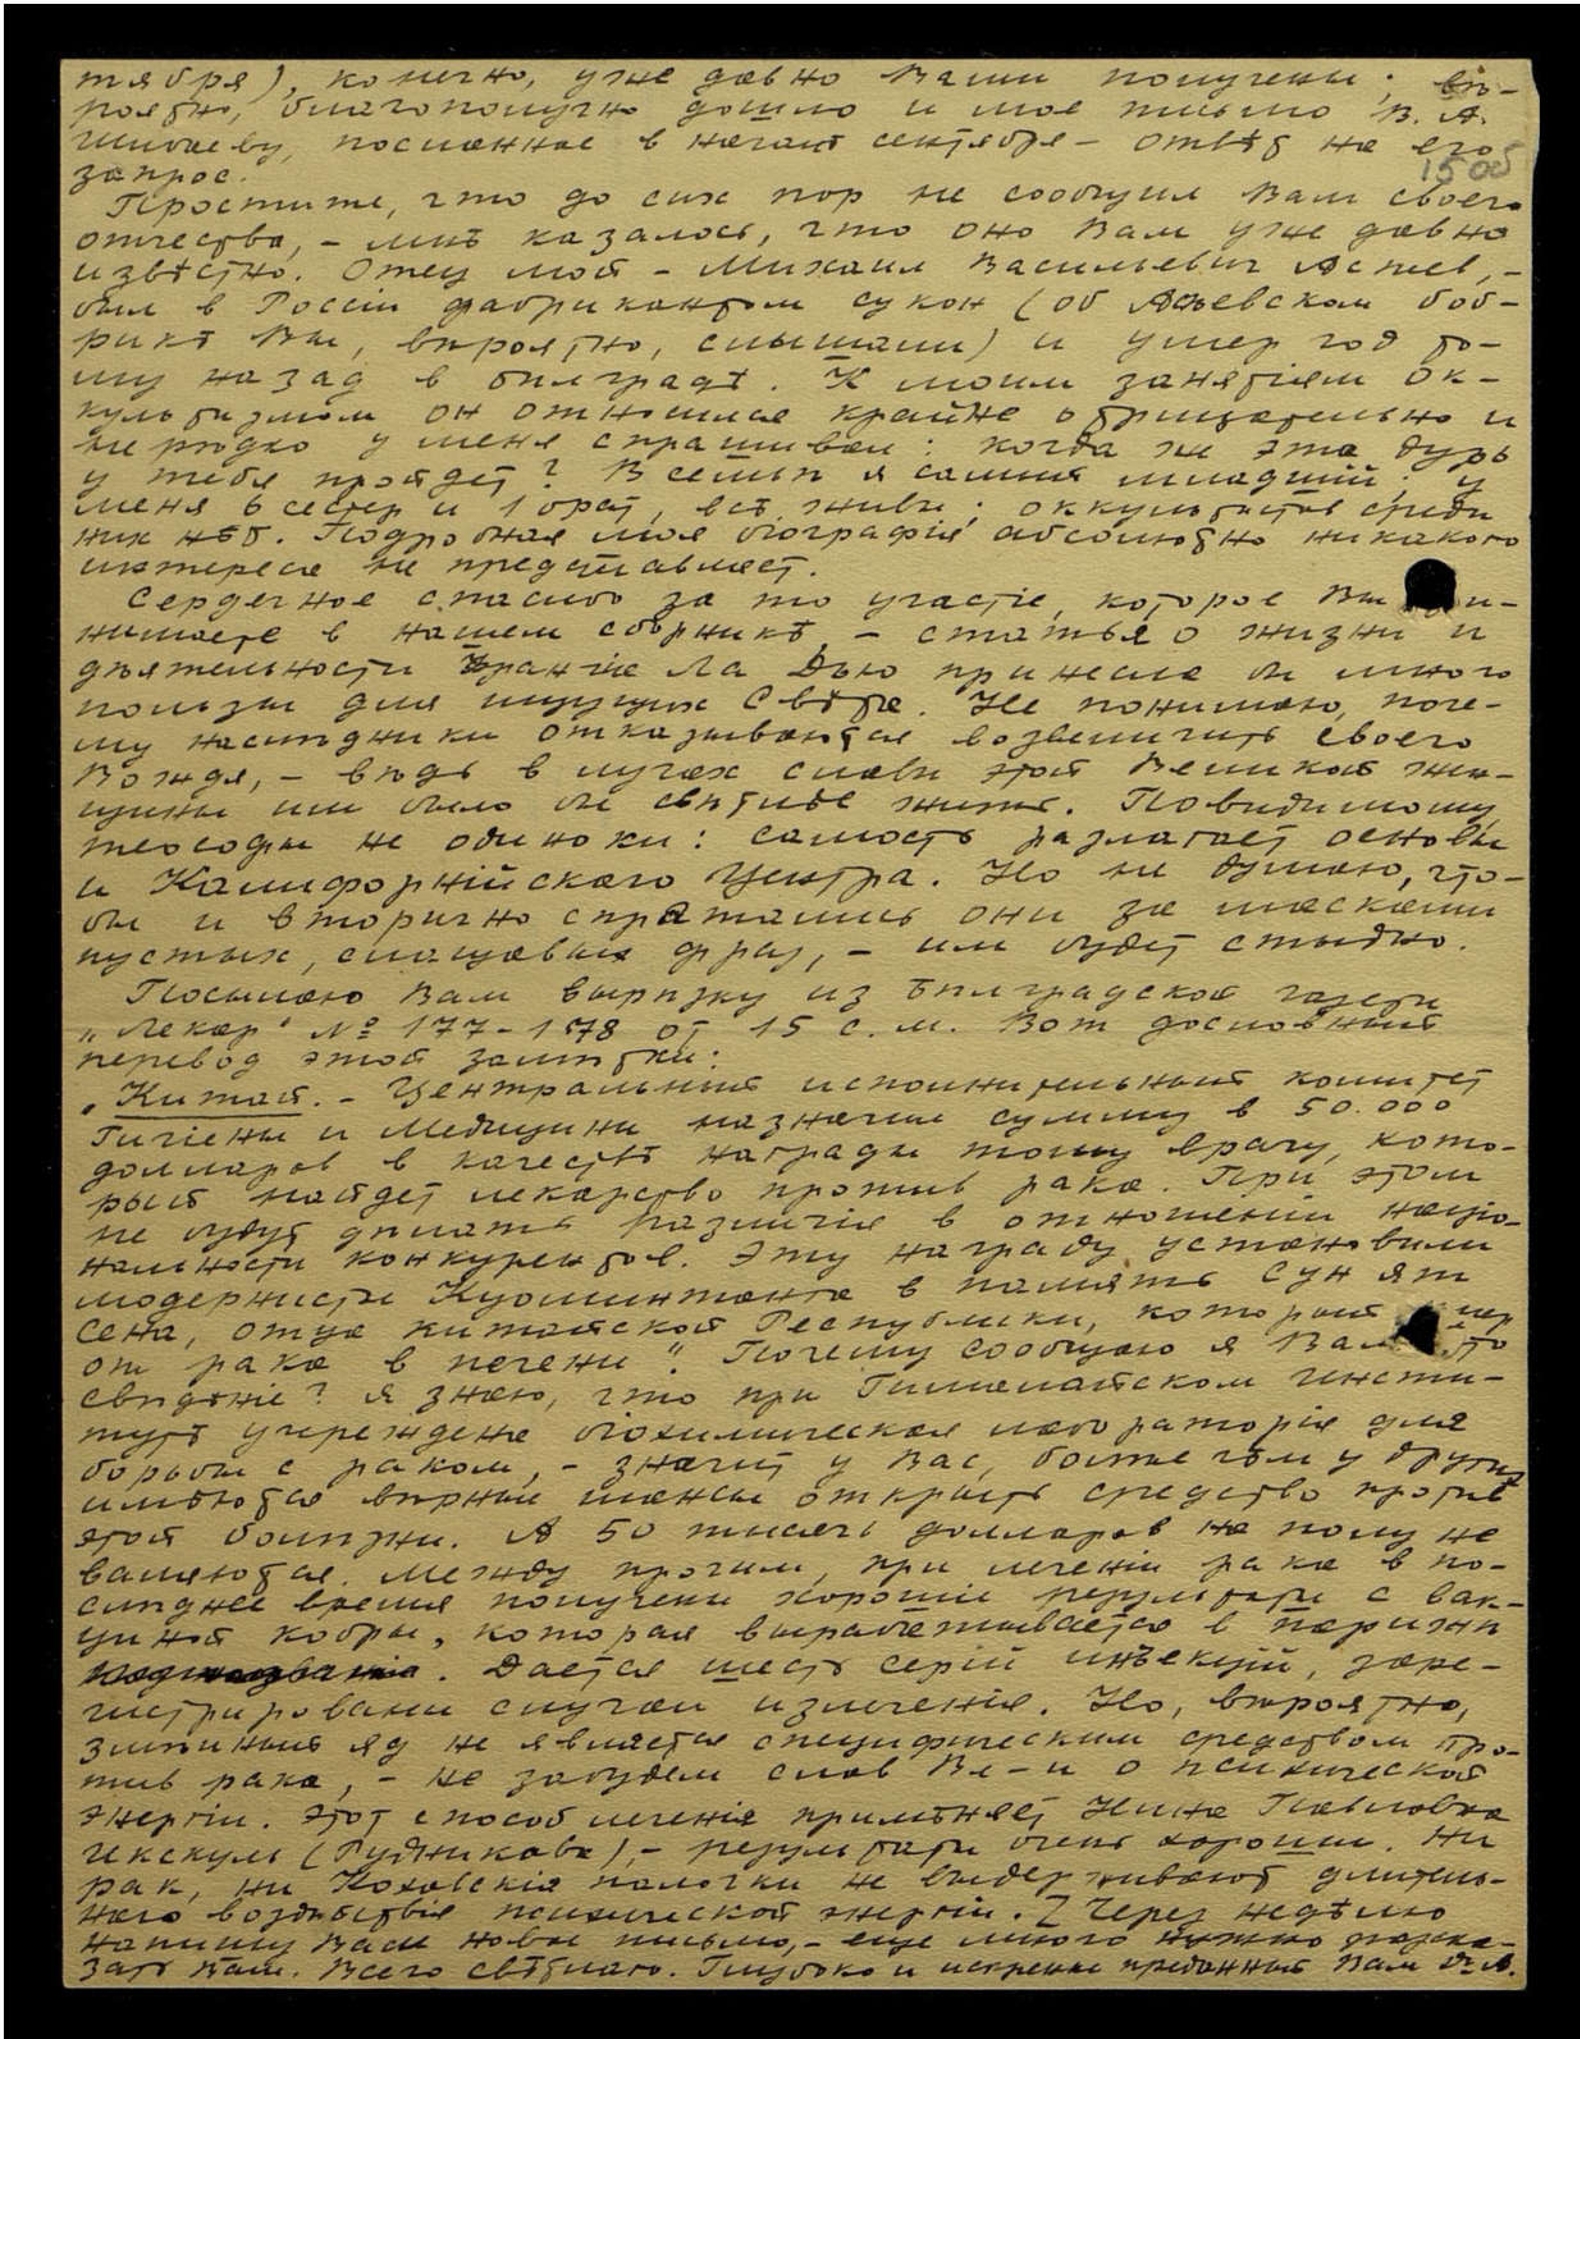 тября), конечно, уже давно Вами получены; вѣ-
роятно, благополучно дошло и мое письмо В. А.
Шибаеву, посланное в началѣ сентября – отвѣт на его
запрос.
15 об
Простите, что до сих пор не сообщил Вам своего
отчества, – мнѣ казалось, что оно Вам уже давно
извѣстно. Отец мой – Михаил Васильевич Асѣев, –
был в Россіи фабрикантом сукон (об Асѣевском боб-
рикѣ Вы, вѣроятно, слышали) и умер год то-
му назад в Бѣлградѣ. К моим занятіям ок-
культизмом он относился крайне отрицательно и
нерѣдко у меня спрашивал: когда же эта дурь
у тебя пройдет? В семьѣ я самый младшій; у
меня 6 сестер и 1 брат, всѣ живы; оккультистов среди
них нѣт. Подробная моя біографія абсолютно никакого
интереса не представляет.
Сердечное спасибо за то участіе, которое Вы и-
нимаете в нашем сборникѣ, – статья о жизни и
дѣятельности Франчіа Ла Дью принесла бы много
пользы для ищущих Свѣта. Не понимаю, поче-
му наслѣдники отказываются возвеличить своего
Вождя, – вѣдь в лучах славы этой Великой жен-
щины им было бы свѣтлѣе жить. Повидимому,
теософы не одиноки: самость разлагает основы
и Калифорнійскаго Центра. Но не думаю, что-
бы и вторично спрятались они за масками
пустых, слащавых фраз, – им будет стыдно.
Посылаю Вам вырѣзку из Бѣлградской газеты
„Лекар" № 177-178 от 15 с. м. Вот дословный
перевод этой замѣтки:
„Китай. – Центральный исполнительный комитет
Гигіены и Медицины назначил сумму в 50.000
долларов в качествѣ награды тому врачу, кото-
рый найдет лекарство против рака. При этом
не будут дѣлать различія в отношеніи націо-
нальности конкурентов. Эту награду установили
модернисты Куоминтанга в память Сун Ят
Сена, отца китайской Республики, который умер
от рака в печени". Почему сообщаю я Вам это
свѣдѣніе? Я знаю, что при Гималайском Инсти-
тутѣ учреждена біохимическая лаборатория для
борьбы с раком, – значит у Вас, болѣе чѣм у других
имѣются вѣрные шансы открыть средство против
этой болѣзни. А 50 тысяч долларов на полу не
валяются. Между прочим, при леченіи рака в по-
слѣднее время получены хорошіе результаты с вак-
циной кобры, которая вырабатывается в Парижѣ
. Дается шесть серій инъекцій, заре-
гистрированы случаи излеченія. Но, вѣроятно,
змѣиный яд не является специфическим средством про-
тив рака, – не забудем слов Вл-и о психической
энергіи. Этот способ леченія примѣняет Нина Павловна
Икскуль (Рудникова), – результаты очень хорошіи. Ни
рак, ни Коховскія палочки не выдерживают длитель-
наго воздѣйствія психической энергіи. Z Через недѣлю
напишу Вам новое письмо, – еще много нужно расска-
зать Вам. Всего свѣтлаго. Глубоко и искренне преданный Вам Dr А.